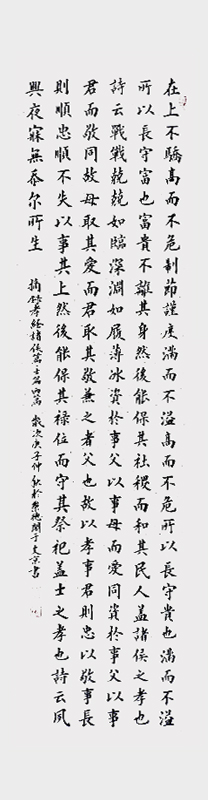 在上不驕高而不危制節謹度滿而不溢高而不危所以長守貴也滿而不溢
所以長守富也富貴不離其身然後能保其社稷而和其民人蓋諸侯之孝也
詩云戰戰兢兢如臨深淵如履薄冰資於事父以事母而愛同資於事父以事
君而敬同故母取其愛而君取其敬兼之者父也故以孝事君則忠以敬事長
則順忠順不失以事其上然後能保其祿位而守其祭祀盖士之孝也詩云夙
興夜寐無忝尔所生
摘錄孝經諸侯篇士篇兩篇 歲次庚子仲秋於 書